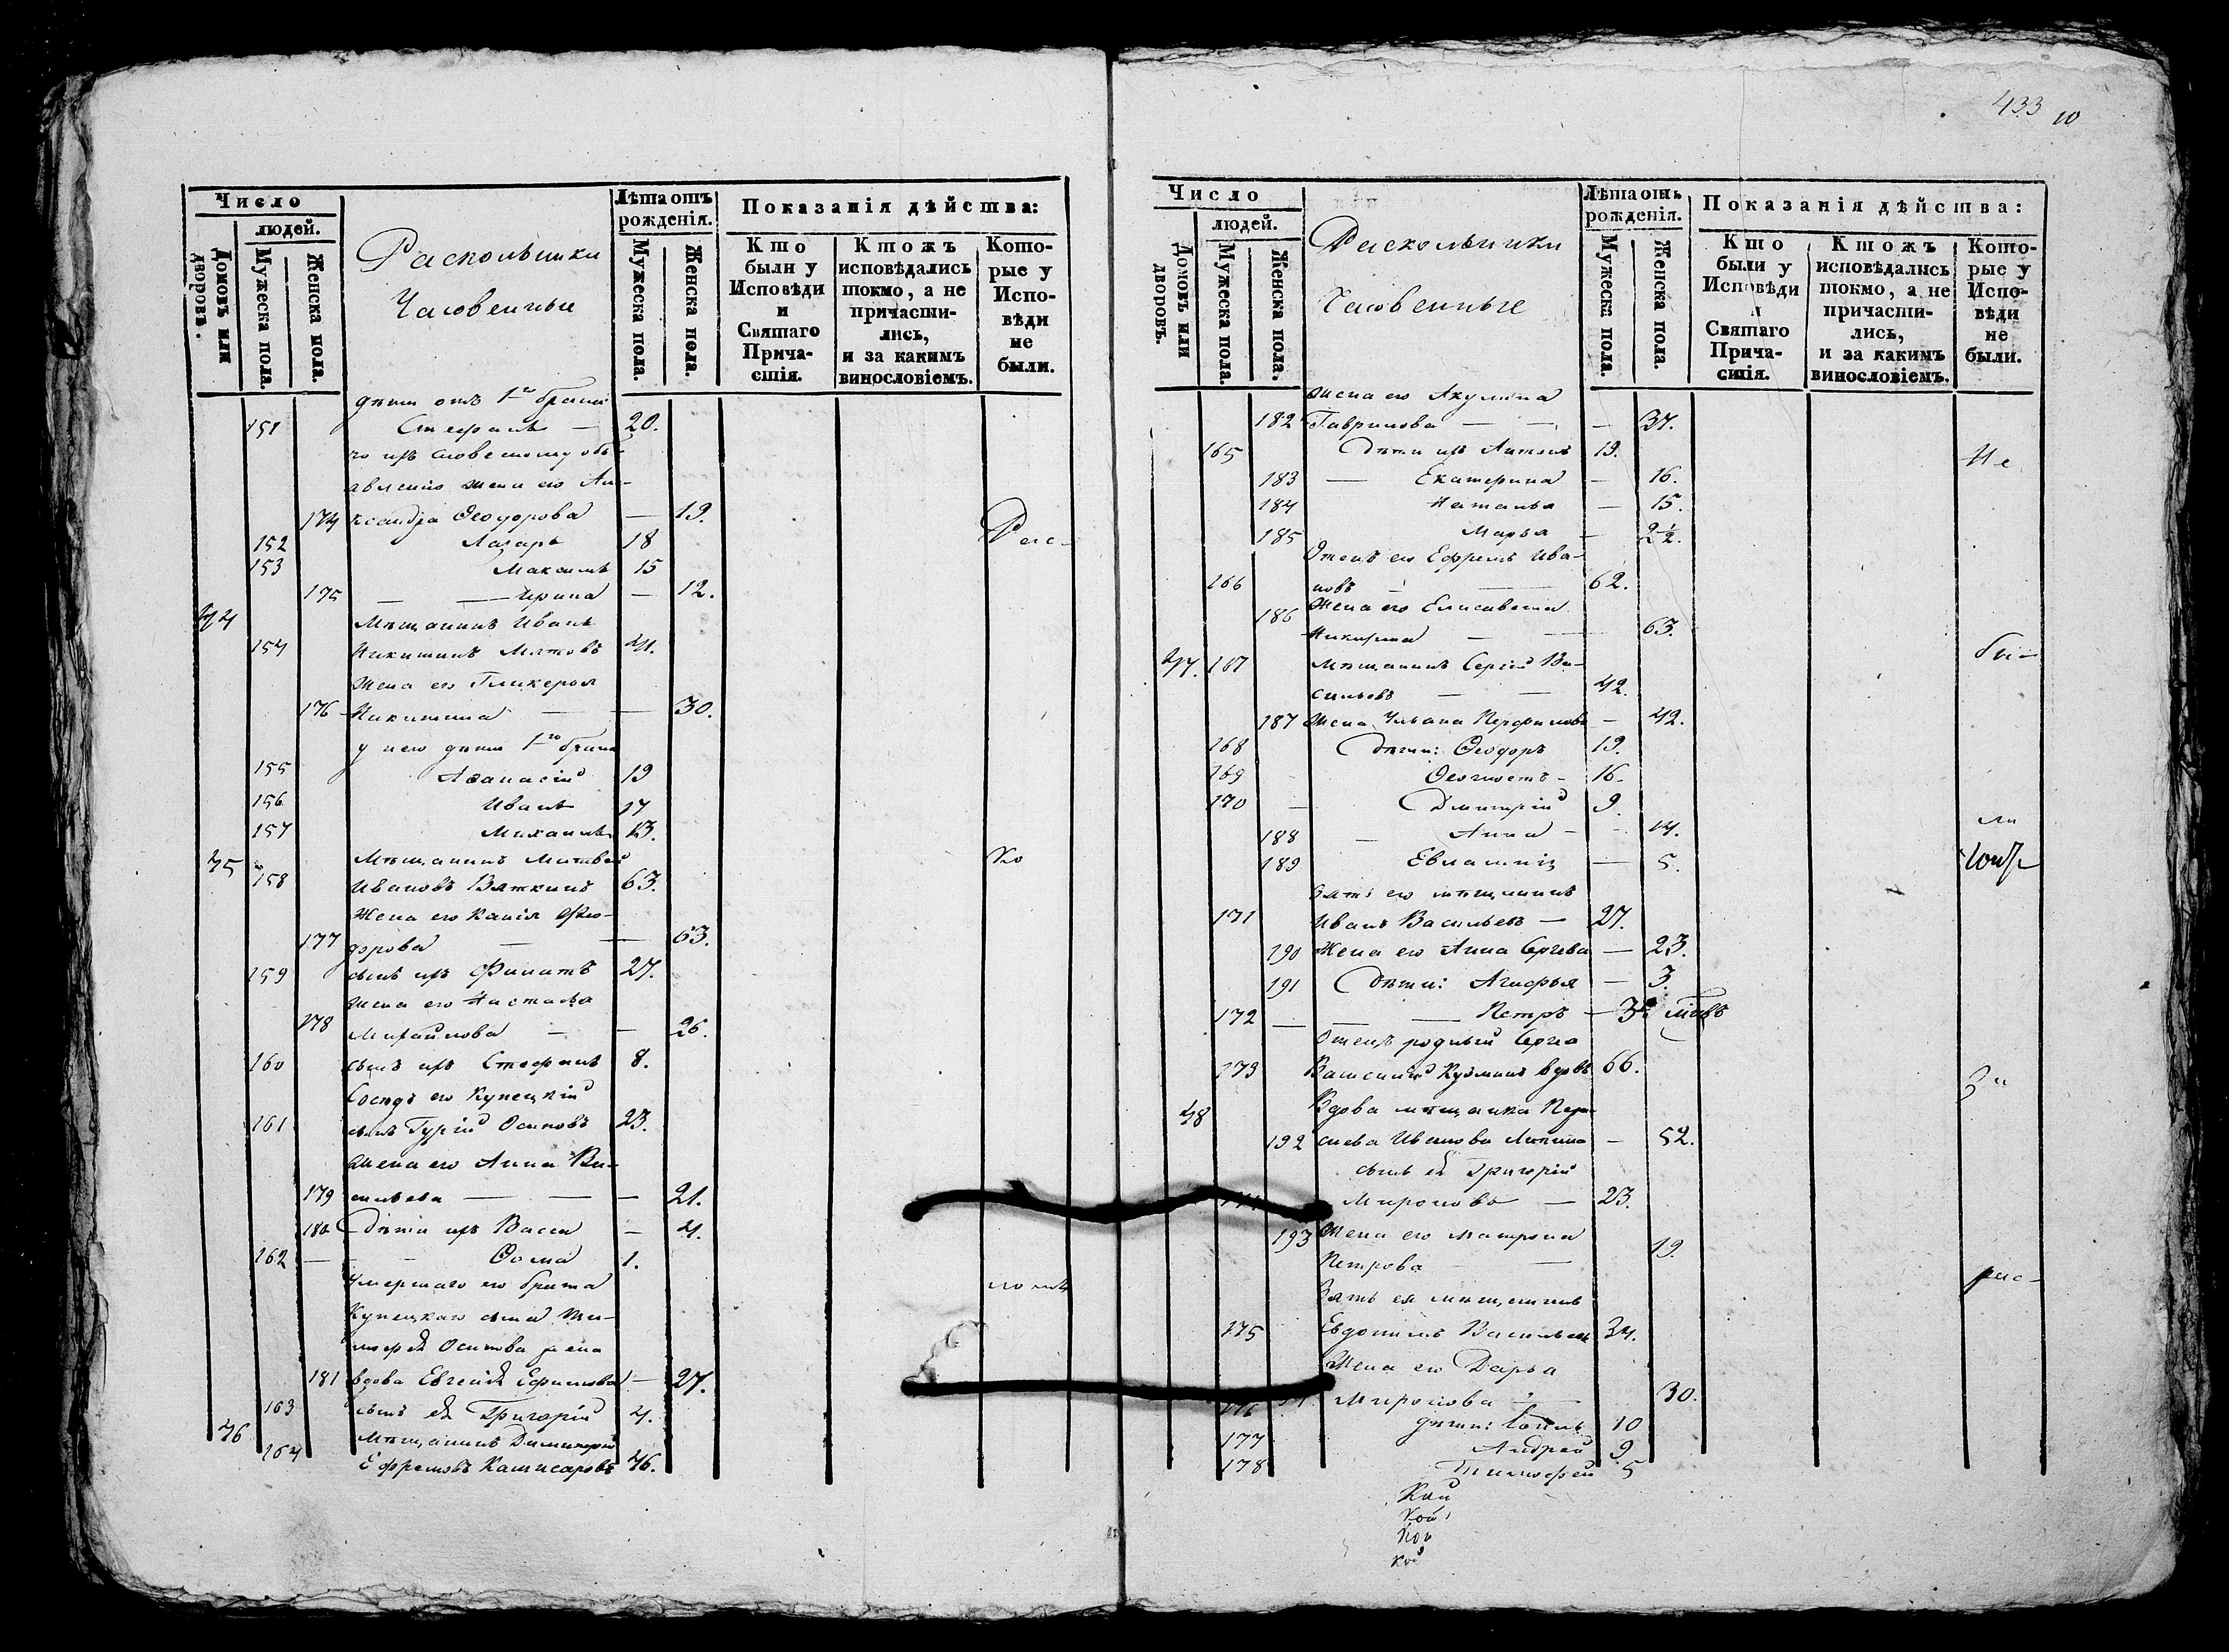 433 10
Число
людей.
Домовъ или дворовъ.
Мужеска пола.
Женска пола.
Раскольники
Часовенные
Лѣта отъ рожденія.
Мужеска пола.
Женска пола.
Показанія дѣйства:
Кто были у Исповѣди и Святаго Причастія.
Ктожъ исповѣдались токмо, а не причастились, и за какимъ винословіемъ.
Которые у Исповѣди не были.
дѣти отъ 1го брака
151 Стефанъ — 20.
по ихъ словесному объ-
явленію жена его Але-
174 ксандра Ѳеодорова — 19.
152 Лазарь 18 Рас-
153 Максимъ 15
175 — — Ирина — 12.
44 Мѣщанинъ Иванъ
154 Никитинъ 41.
Жена его Гликерья
176 Никитина — — 30.
у него дѣти 1го брака
155 Аѳанасій 19
156 Иванъ 17
157 Михаилъ 13.
45 Мѣщанинъ Матвей ко
158 Ивановъ Вяткинъ 63.
Жена его Ѳео-
177 дорова — — 63.
159 сынъ ихъ Филатъ 27.
жена его Настасья
178 — — 26.
160 сынъ ихъ Стефанъ 8.
Сосѣдъ его Купецкій
161 сынъ Гурій Осиповъ 23.
жена его Анна Ва-
179 сильева — — — 21.
180 Дѣти ихъ Васса — 4.
162 — — Ѳома 1.
Умершаго его брата
Купецкаго сына Ти-
мофея Осипова жена
181 вдова Евгенія Ефимова — 27.
163 сынъ ея Григорій 4.
46 Мѣщанинъ Димитрій
164 Ефремовъ 46.
Число
людей.
Домовъ или дворовъ.
Мужеска пола.
Женска пола.
Раскольники
Часовенные
Лѣта отъ рожденія.
Мужеска пола.
Женска пола.
Показанія дѣйства:
Кто были у Исповѣди и Святаго Причастія.
Ктожъ исповѣдались токмо, а не причастились, и за какимъ винословіемъ.
Которые у Исповѣди не были.
жена его Акулина
182 Гаврилова — — — 37.
165 Дѣти ихъ Антонъ 19. Не
183 — Екатерина — 16.
184 Наталья — 15.
185 Марья — 2½.
Отецъ его Ефремъ Ива-
166 новъ — — 62.
Жена его Елисавета
186 — — 63.
47. 167 Мѣщанинъ Сергій Ва- бы-
сильевъ — — 42.
187 жена Ульяна — 42.
168 Дѣти: Ѳеодоръ 19.
169 Ѳеогностъ — 16.
170 — Дмитрій 9.
188 — Анна — — 14. ли
189 Евлампія — 5.
зять его мѣщанинъ
171 Иванъ Васильевъ — 27.
190 Жена его Анна Сергѣва — 23.
191 Дѣти: Агафья — 3.
172 — — — Петръ —
Отецъ родный Сергія
173 Василій Кузминъ вдовъ 66.
За
48 Вдова мѣщанка
192 Иванова — 52.
сынъ ея Григорій
Мироновъ — 23.
193 Жена его Матрона
Петрова — — 19.
рас-
Зять ея мѣщанинъ
175 Евдокимъ Васильевъ 34.
Жена его Дарья
Миронова — — 30.
176 дѣти: 10
177 Андрей 9
178 Тимофей 5
Кой
Кой
Кой
Кой